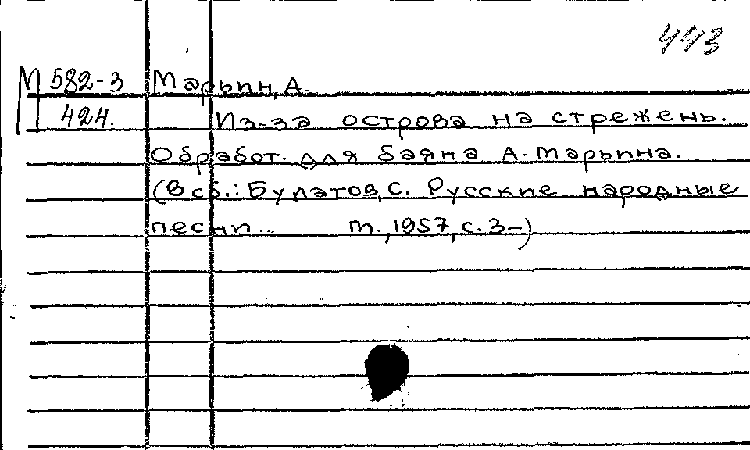 443
М 582-3 Марьин, А.
424. Из-за острова на стрежень.
Обработ. для баяна А. Марьина.
(В сб.: Булатов, С. Русские народные
песни... М., 1957, с. 3-)